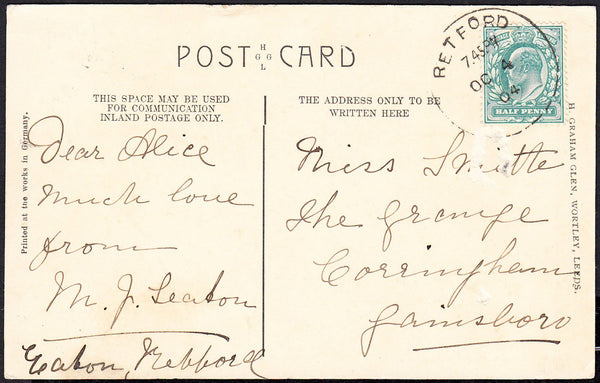 POST CARD
H
G G
L
THIS SPACE MAY BE USED
FOR COMMUNICATION
INLAND POSTAGE ONLY.
THE ADDRESS ONLY TO BE
WRITTEN HERE
RETFORD
7.45PM
OC 4
04
HALF PENNY
Printed at the works in Germany.
Dear Alice
Much love
from
M. J. Seaton
Eaton, Retford
Miss
The Grange
Corringham
Gainsboro
H. GRAHAM GLEN, WORTLEY, LEEDS.